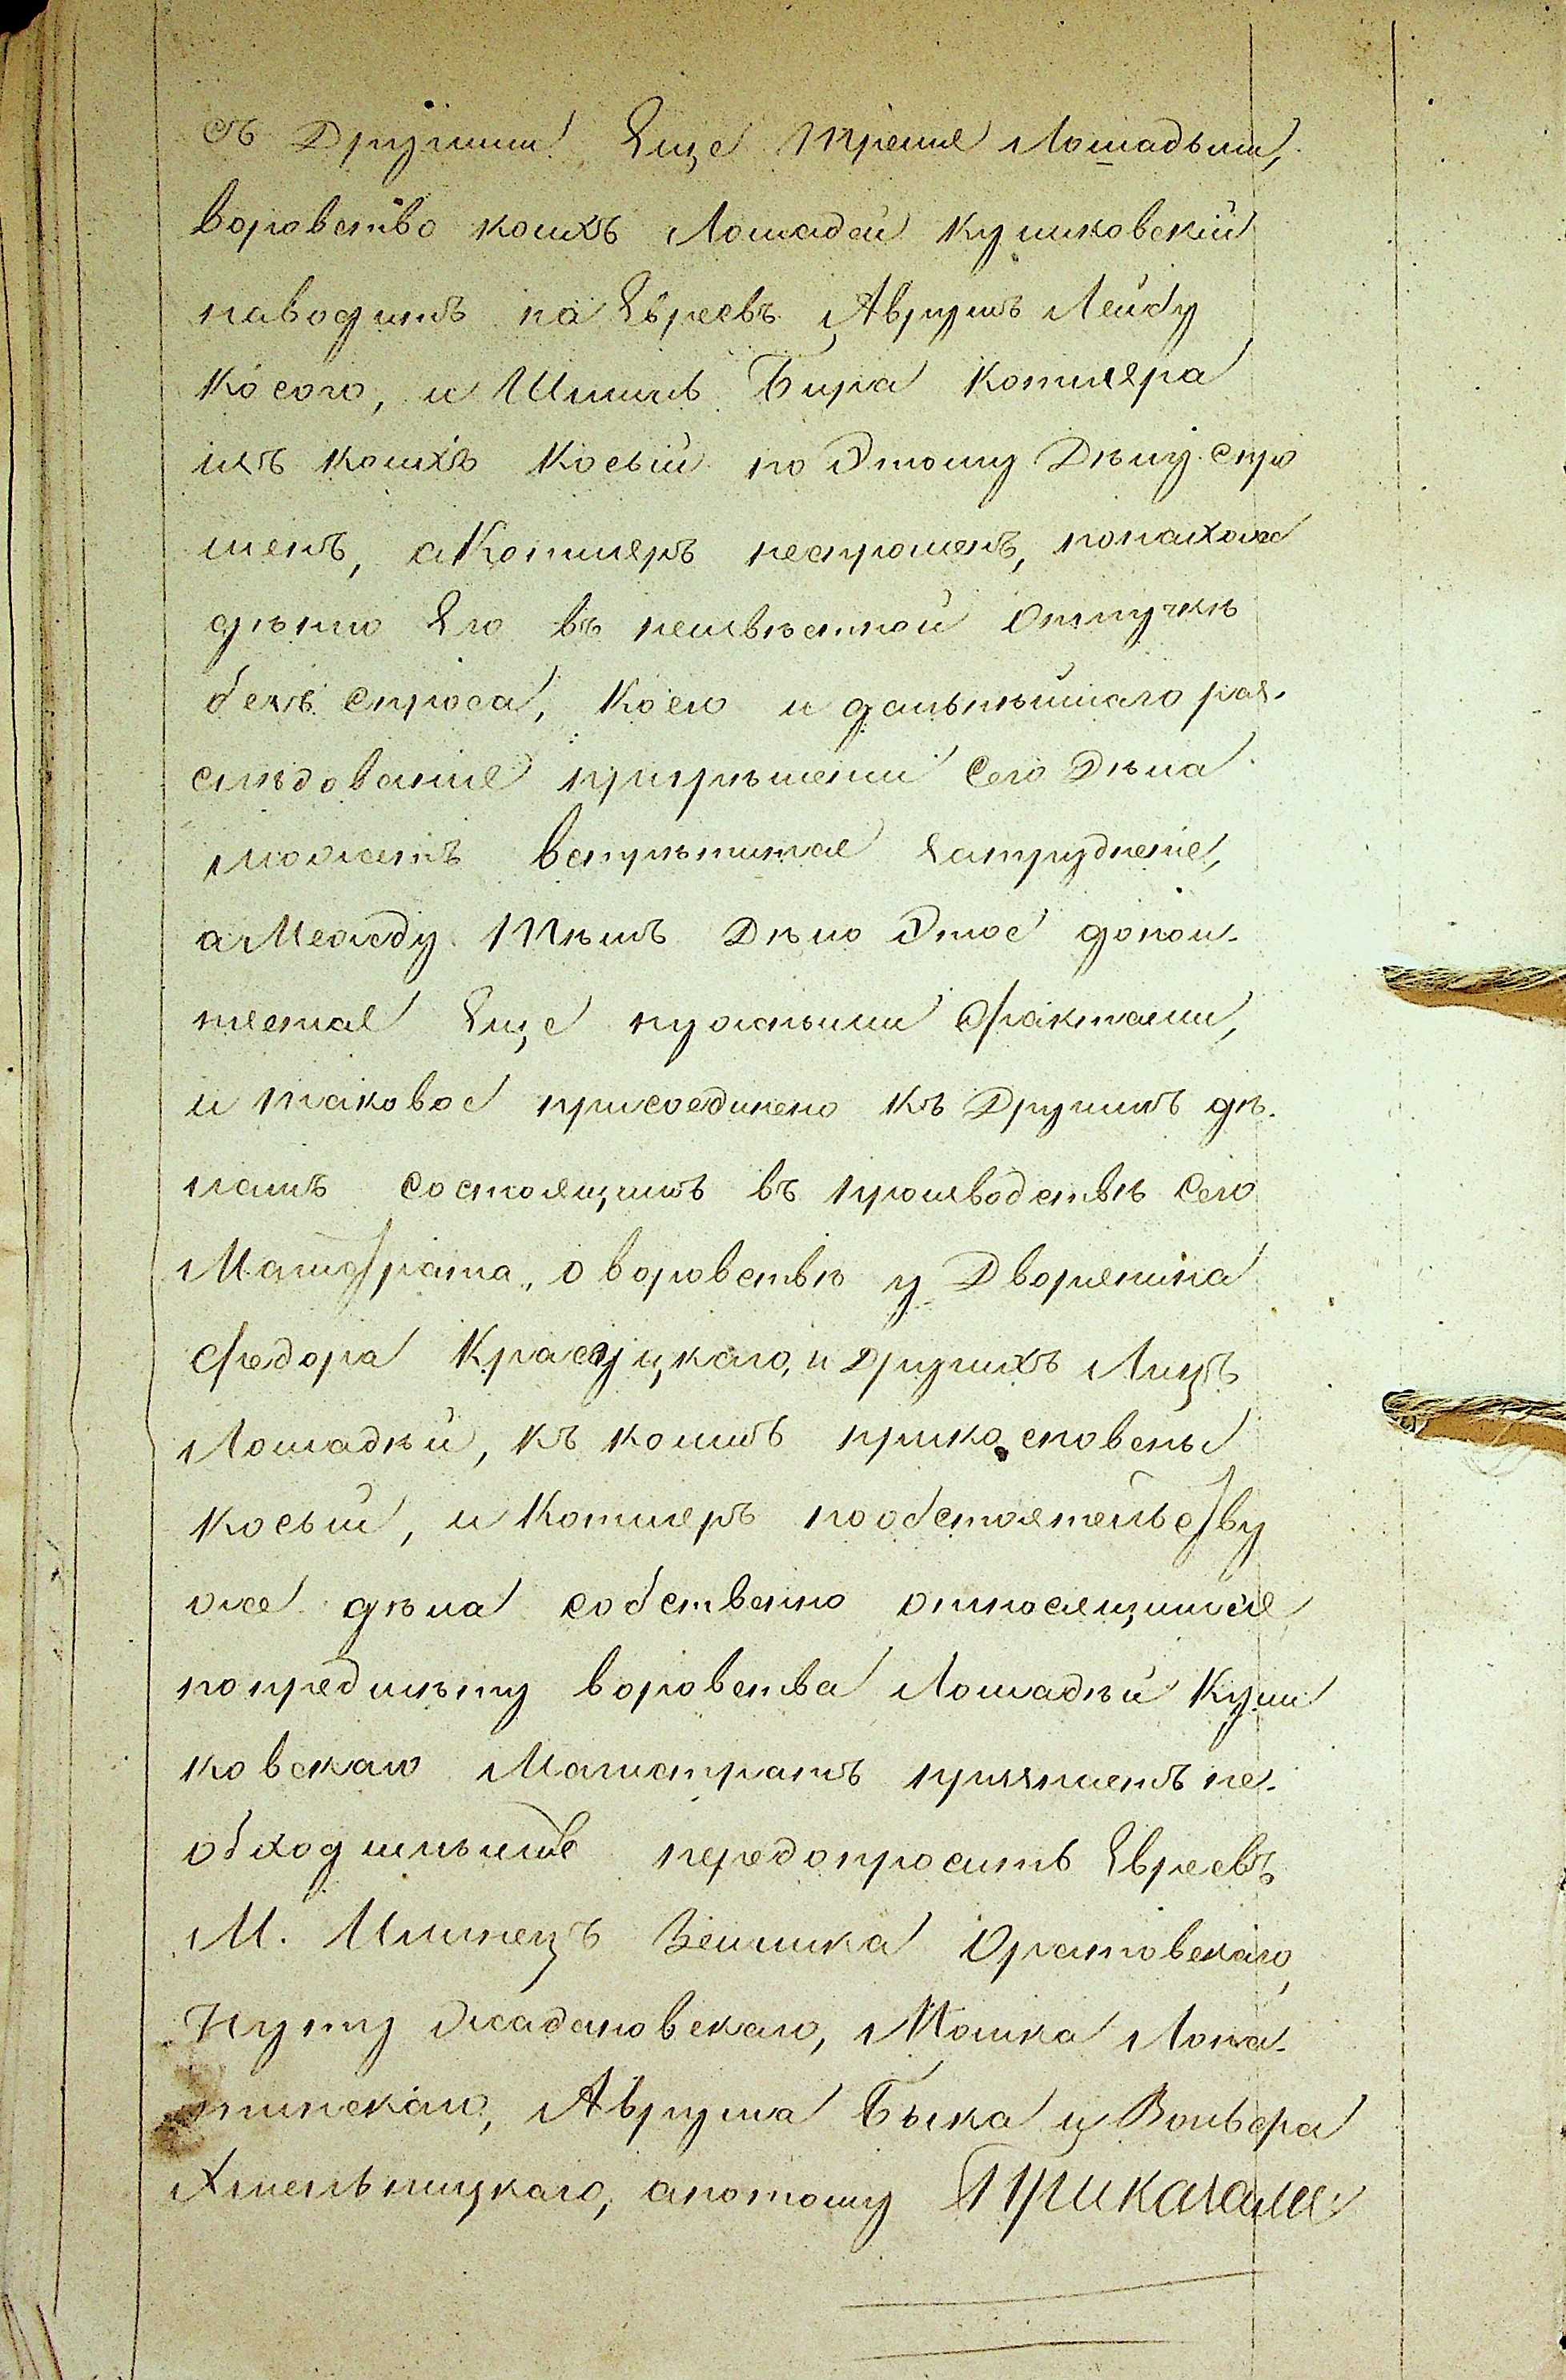 съ Другими Еще тремя Лошадьми,
воровство коихъ Лошадей Куликовскій
наводитъ на Евреевъ Аврумъ Лейбу
Косого, и Шмиль Бера Котляра
изъ коихъ Косый по Этому Дѣлу спро
шенъ, а Котляръ неспрошенъ, понахож
дѣнію Его въ неизвѣстной Отлучкѣ
безъ спроса, Коего и дальнѣйшаго раз-
слѣдованіе прирѣшеніи Сего Дѣла
можетъ встрѣтится затрудненіе,
а Между Тѣмъ Дѣло Этое допол-
няется Еще нужными Фактами,
и таковое присоединено къ Другимъ дѣ-
ламъ состоящимъ въ производствѣ Сего
Магистрата, о воровствѣ у Дворянина
Федора Красуцкаго, и другихъ Лицъ
Лошадѣй, къ коимъ прикосновены
Косый, и Котляръ пообстоятельству
же дѣла собственно относящимся
попредмѣту воровства Лошадѣй Кули
ковскаго Магистратъ признаетъ не-
обходимымъ передопросить Евреевъ
М. Илинецъ Зельмика Оратовскаго,
Нуту Жадановскаго, Мошка Лопа-
тинскаго, Аврума Быка и Вольфа
Хмельницкаго, апотому Приказали